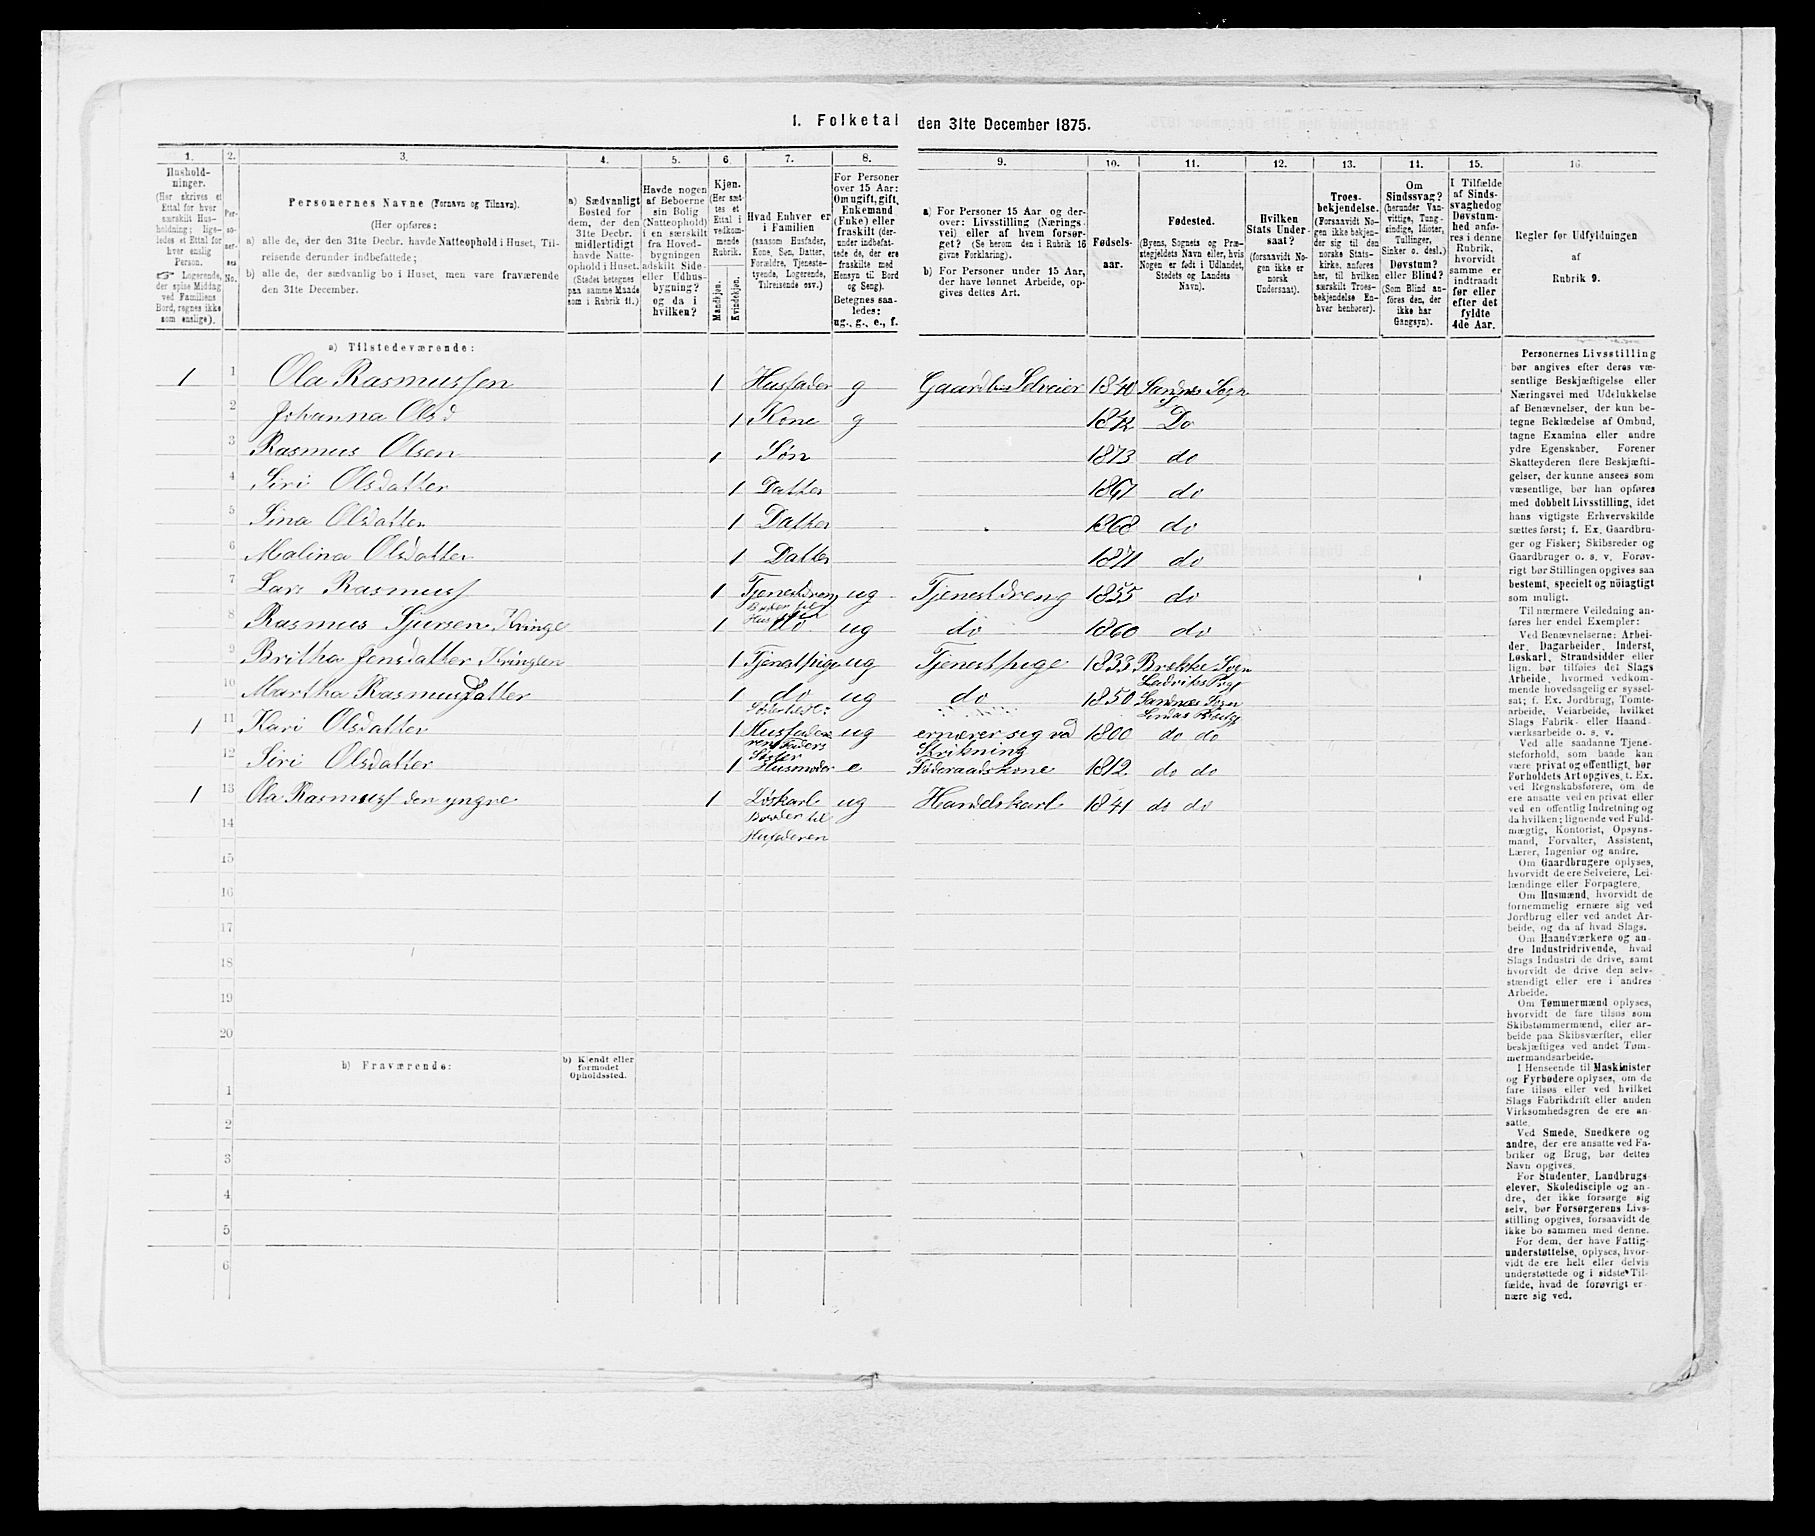 1. Folketal den 31te December 1875.
1. 2. 3. 4. 5. 6. 7. 8. 9. 10. 11. 12. 13. 14. 15. 16.
Husholdninger.
(Her skrives et
Ettal for hver
særskilt Husholdning;
ligeledes et Ettal for
hver enslig
Person.
☞ Logerende,
der spise Middag
ved Familiens
Bord, regnes ikke
som enslige).
Personernes No.
Personernes Navne (Fornavn og Tilnavn).
(Her opføres:
a) alle de, der den 31te Decbr. havde Natteophold i Huset, Tilreisende derunder indbefattede;
b) alle de, der sædvanlig bo i Huset, men vare fraværende den 31te December.
a) Sædvanligt
Bosted for
dem, der den
31te Decbr.
midlertidigt
havde Natteophold i Huset.
(Stedet betegnes
paa samme Maade
som i Rubrik 11.)
Havde nogen
af Beboerne
sin Bolig
(Natteophold)
i en særskilt
fra Hovedbygningen
adskilt Side-
eller Udhusbygning?
og da i
hvilken?
Kjøn.
(Her sættes et
Ettal i
vedkommende
Rubrik.
Mandkjøn.
Kvindekjøn.
Hvad Enhver er
i Familien
(saasom Husfader,
Kone, Søn, Datter,
Forældre, Tjenestetyende, Logerende,
Tilreisende osv.)
For Personer
over 15 Aar:
Om ugift, gift,
Enkemand
(Enke) eller
fraskilt (derunder indbefattede de, der ere
fraskilte med
Hensyn til Bord
og Seng).
Betegnes saaledes:
ug., g., e., f.
a) For Personer 15 Aar og derover: Livsstilling (Næringsvei) eller af hvem forsørget? (Se herom den i Rubrik 16
givne Forklaring).
b) For Personer under 15 Aar,
der have lønnet Arbeide, opgives dettes Art.
Fødselsaar.
Fødested.
(Byens, Sognets og Præstegjeldets Navn eller, hvis
Nogen er født i Udlandet,
Stedets og Landets
Navn).
Hvilken
Stats Undersaat?
(forsaavidt Nogen ikke er
norsk
Undersaat).
Troesbekjendelse.
(Forsaavidt Nogen ikke bekjender sig til den
norske Statskirke, anføres
her, til hvilken
særskilt Troesbekjendelse Enhver henhører).
Om
Sindssvag?
(herunder Vanvittige, Tungsindige, Idioter,
Tullinger,
Sinker o. desl.)
Døvstum?
eller Blind?
(Som Blind anføres den, der
ikke har
Gangsyn).
I Tilfælde
af Sindssvaghed og
Døvstumhed anføres i denne
Rubrik,
hvorvidt
samme er
indtraadt
før eller
efter det
fyldte
4de Aar.
Regler for Udfyldningen
af
Rubrik 9.
a) Tilstedeværende:
1 1 Ola Rasmussen 1 Husfader g Gaardbr. Selveier 1840 Sandnes Sogn
2 Johanna Olsd 1 Kone g 1842 Do
3 Rasmus Olsen 1 Søn 1873 do
4 Siri Olsdatter 1 Datter 1867 do
5 Sina Olsdatter 1 Datter 1868 do
6 Malina Olsdatter 1 Datter 1871 do
7 Lars Rasmuss 1 Tjenestdreng Broder til Husfad ug Tjenestdreng 1855 do
8 Rasmus Sjursen Kringl 1 do ug do 1860 do
9 Britha Jensdatter Kringlen 1 Tjenestpige ug Tjenestpige 1833 Brekke Sogn Ladviks Prgj
10 Martha Rasmusdatter 1 do ug do 1850 Sandnes Sogn Lindås
1 11 Kari Olsdatter 1 Husfaderens Faders Søster ug ernærer sig ved Strikning 1800 do do
12 Siri Olsdatter 1 Husmoder e Føderaadskone 1812 do do
1 13 Ola Rasmuss den yngre 1 Løskarl Broder til Husfaderen ug Handelskarl 1841 do do
14
15
16
17
18
19
20
b) Fraværende:
b) Kjendt eller
formodet
Opholdssted.
1
2
3
4
5
6
Personernes Livsstilling
bør angives efter deres væsentlige Beskjæftigelse eller
Næringsvei med Udelukkelse
af Benævnelser, der kun betegne Beklædelse af Ombud,
tagne Examina eller andre
ydre Egenskaber. Forener
Skatteyderen flere Beskjæftigelser, der kunne ansees som
væsentlige, bør han opføres
med dobbelt Livsstilling, idet
hans vigtigste Erhvervskilde
sættes først; f. Ex. Gaardbruger og Fisker; Skibsreder og
Gaardbruger o. s. v. Forøvrigt bør Stillingen opgives saa
bestemt, specielt og nøiagtigt
som muligt.
Til nærmere Veiledning anføres her endel Exempler:
Ved Benævnelserne: Arbeider, Dagarbeider, Inderst,
Løskarl, Strandsidder eller
lign. bør tilføies det Slags
Arbeide, hvormed vedkommende hovedsagelig er sysselsat; f. Ex. Jordbrug, Tomtearbeide, Veiarbeide, hvilket
Slags Fabrik- eller Haandværksarbeide o. s. v.
Ved alle saadanne Tjenesteforhold, som baade kan
være privat og offentligt, bør
Forholdets Art opgives, t. Ex.
ved Regnskabsførere, om de
ere ansatte ved en privat eller
ved en offentlig Indretning og
da hvilken; lignende ved Fuldmægtig, Kontorist, Opsynsmand, Forvalter, Assistent,
Lærer, Ingeniør og andre.
Om Gaardbrugere oplyses,
hvorvidt de ere Selveiere, Leilændinge eller Forpagtere.
Om Husmænd, hvorvidt de
fornemmelig ernære sig ved
Jordbrug eller ved andet Arbeide, og da af hvad Slags.
Om Haandværkere og andre Industridrivende, hvad
Slags Industri de drive, samt
hvorvidt de drive den selvstændigt eller ere i andres
Arbeide.
Om Tømmermænd oplyses,
hvorvidt de fare tilsøs som
Skibstømmermænd, eller arbeide paa Skibsværfter, eller
beskjæftiges ved andet Tømmermandsarbeide.
I Henseende til Maskinister
og Fyrbødere oplyses, om de
fare tilsøs eller ved hvilket
Slags Fabrikdrift eller anden
Virksomhedsgren de ere ansatte.
Ved Smede, Snedkere og
andre, der ere ansatte ved Fabriker og Brug, bør dettes
Navn opgives.
For Studenter, Landbrugselever, Skoledisciple og andre, der ikke forsørge sig
selv, bør Forsørgerens Livsstilling opgives, forsaavidt de
ikke bo sammen med denne.
For dem, der have Fattigunderstøttelse, oplyses, hvorvidt de ere helt eller delvis
understøttede og i sidste Tilfælde, hvad de forøvrigt ernære sig ved.